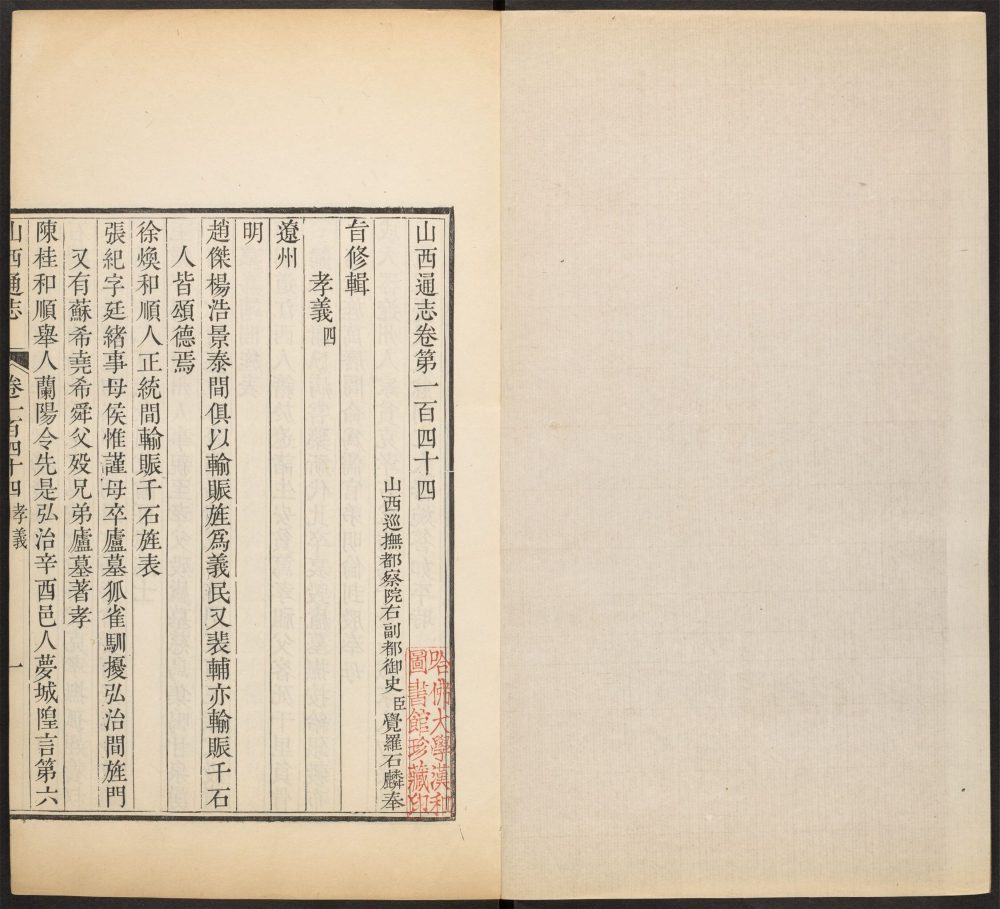 山西通志卷第一百四十四
山西巡撫都察院右副都御史臣覺羅石麟奉
旨修輯
孝義四
遼州
明
趙傑楊浩景泰間俱以輸賑旌爲義民又裴輔亦輸賑千石
人皆頌德焉
徐煥和順人正統間輸賑千石旌表
張紀字廷緒事母侯惟謹母卒廬墓狐雀馴擾弘治間旌門
又有蘇希堯希舜父歿兄弟廬墓著孝
陳桂和順舉人蘭陽令先是弘治辛酉邑人夢城隍言第六
山西通志
卷一百四十四
孝義
一
哈佛大學漢和
圖書館珍藏印